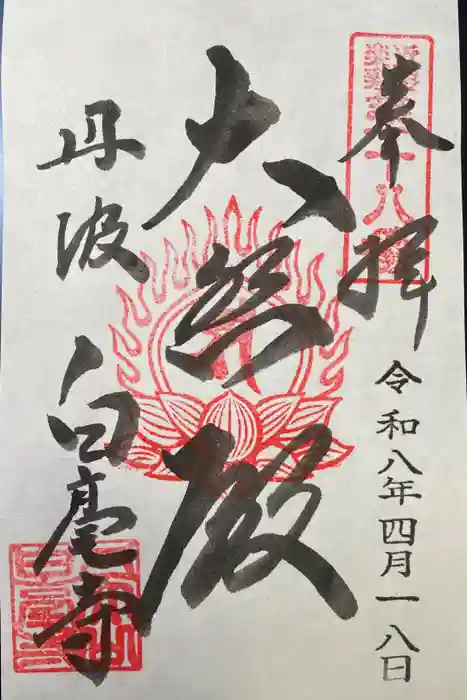 奉拝
令和八年四月一八日
大悲殿
丹波 白毫寺